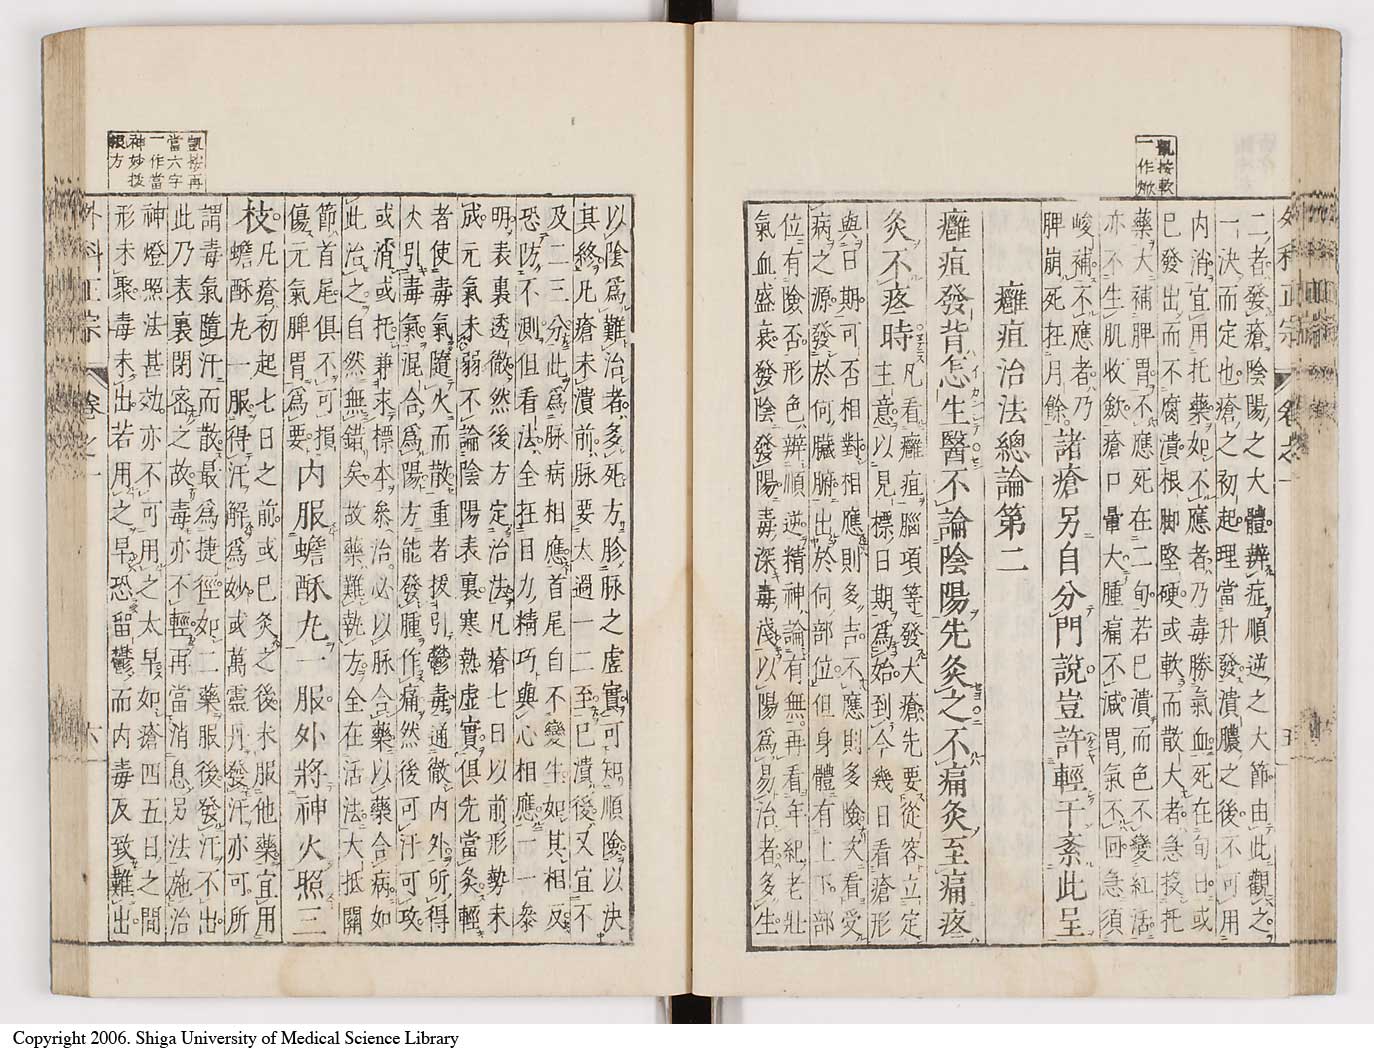 凱按軟
一作焮
二者發瘡陰陽之大體辨症順逆之大節由此觀之
一決而定也瘡之初起理當升發潰膿之後不可用
內消宜用托藥如不應者乃毒勝氣血死在旬日或
已發出而不腐潰根脚堅硬或軟而散大者急投托
藥大補脾胃不應死在二旬若已潰而色不變紅活
亦不生肌收斂瘡口暈大腫痛不減胃氣不回急須
峻補不應者乃
脾崩死在月餘諸瘡另自分門說豈許輕干紊此呈
癰疽治法總論第二
癰疽發背怎生醫不論陰陽先灸之不痛灸至痛疼
灸不疼時主意以見標日期爲始到今幾日看瘡形
凡看癰疽腦項等發大瘡先要從容立定
與日期可否相對相應則多吉不應則多險次看受
病之源發於何臟腑出於何部位但身體有上下部
位有險否形色辨順逆精神論有無再看年紀老壯
氣血盛衰發陰發陽毒深毒淺以陽爲易治者多生
外科正宗 卷之一 五
凱按再
當六字
一作當
神妙拔
根方
以陰爲難治者多死方胗脉之虛實可知順險以決
其終凡瘡未潰前脉要太過一二至已潰後又宜不
及二三分此爲脉病相應首尾自不變生如其相反
恐防不測但看法全在目力精巧與心相應一一叅
明表裏透徹然後方定治法凡瘡七日以前形勢未
成元氣未弱不論陰陽表裏寒熱虛實俱先當灸輕
者使毒氣隨火而散重者拔引鬱毒通徹內外所得
火引毒氣混合爲陽方能發腫作痛然後可汗可攻
或消或托兼求標本叅治必以脉合藥以藥合病如
此治之自然無錯矣故藥難執方全在活法大抵關
節首尾俱不可損
傷元氣脾胃爲要內服蟾酥丸一服外將神火照三
枝凡瘡初起七日之前或已灸之後未服他藥宜用
蟾酥丸一服得汗解爲妙或萬靈丹發汗亦可所
謂毒氣隨汗而散最爲捷徑如二藥服後發汗不出
此乃表裏閉密之故毒亦不輕再當消息另法施治
神燈照法甚効亦不可用之太早如瘡四五日之間
形未聚毒未出若用之早恐留鬱而內毒反致難出
外科正宗 卷之一 六
Copyright 2006. Shiga University of Medical Science Library